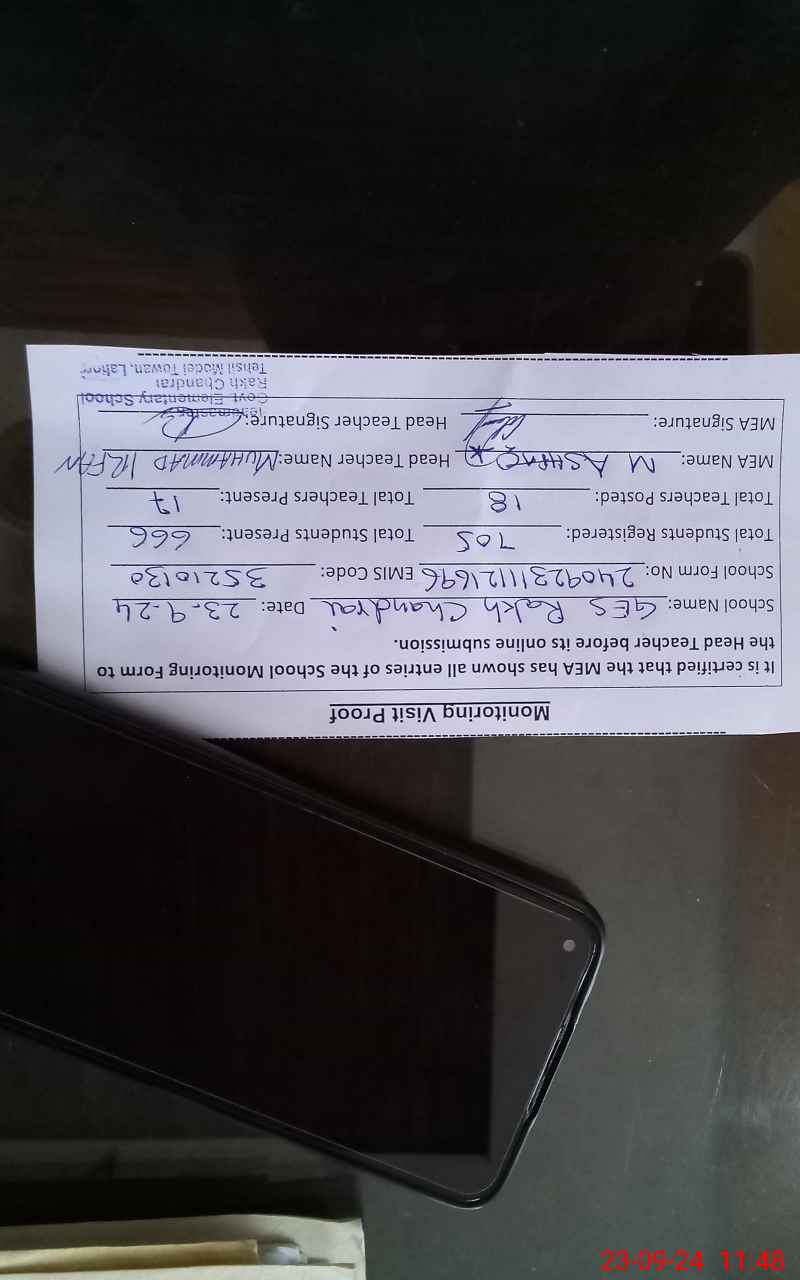 Monitoring Visit Proof
It is certified that the MEA has shown all entries of the School Monitoring Form to
the Head Teacher before its online submission.
School Name: GES Rakh Chandrai Date: 23-9-24
School Form No: 24092311121696 EMIS Code: 35210130
Total Students Registered: 705 Total Students Present: 666
Total Teachers Posted: 18 Total Teachers Present: 17
MEA Name: M ASHFAQ Head Teacher Name: MUHAMMAD IRFAN
MEA Signature: Head Teacher Signature:
Govt. Elementary School
Rakh Chandrai
Tehsil Model Towan, Lahore
23-09-24 11:48